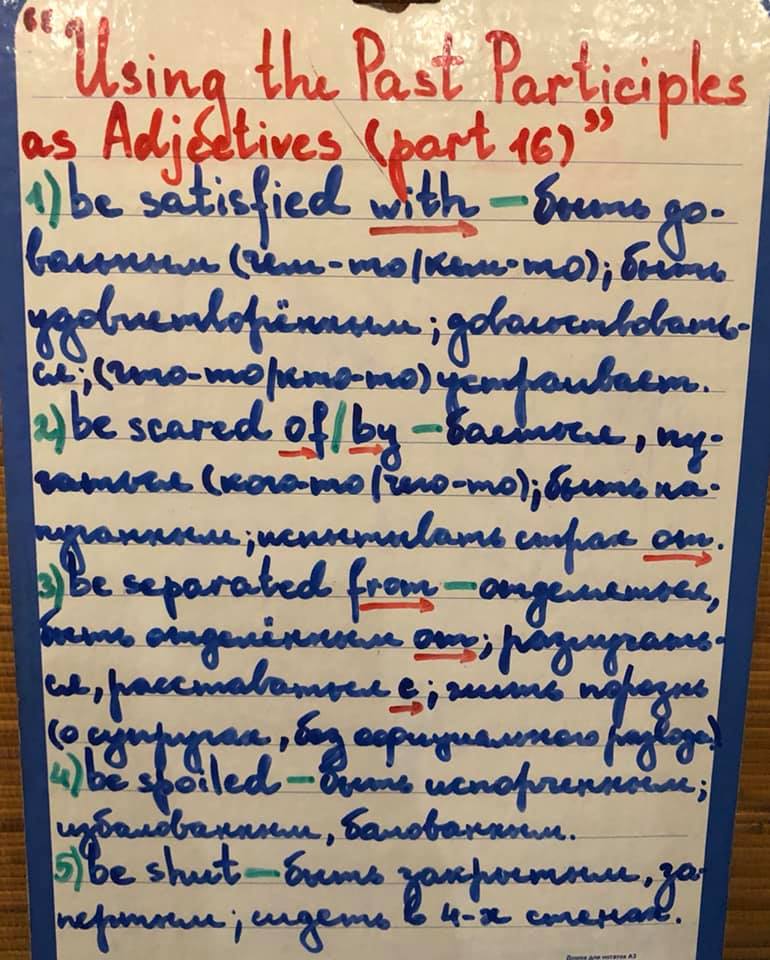 "Using the Past Participles
as Adjectives (part 16)"
1) be satisfied with — быть до-
вольным (чем-то/кем-то); быть
удовлетворённым; довольствовать-
ся; (что-то/кто-то) устраивает.
2) be scared of/by — бояться, пу-
гаться (кого-то/чего-то); быть на-
пуганным; испытывать страх от.
3) be separated from — отделяться,
быть отделённым от; разлучать-
ся, расставаться с; жить порознь
(о супругах, без официального развода)
4) be spoiled — быть испорченным;
избалованным, балованным.
5) be shut — быть закрытым, за-
пертым; сидеть в 4-х стенах.
Доска для заметок А3